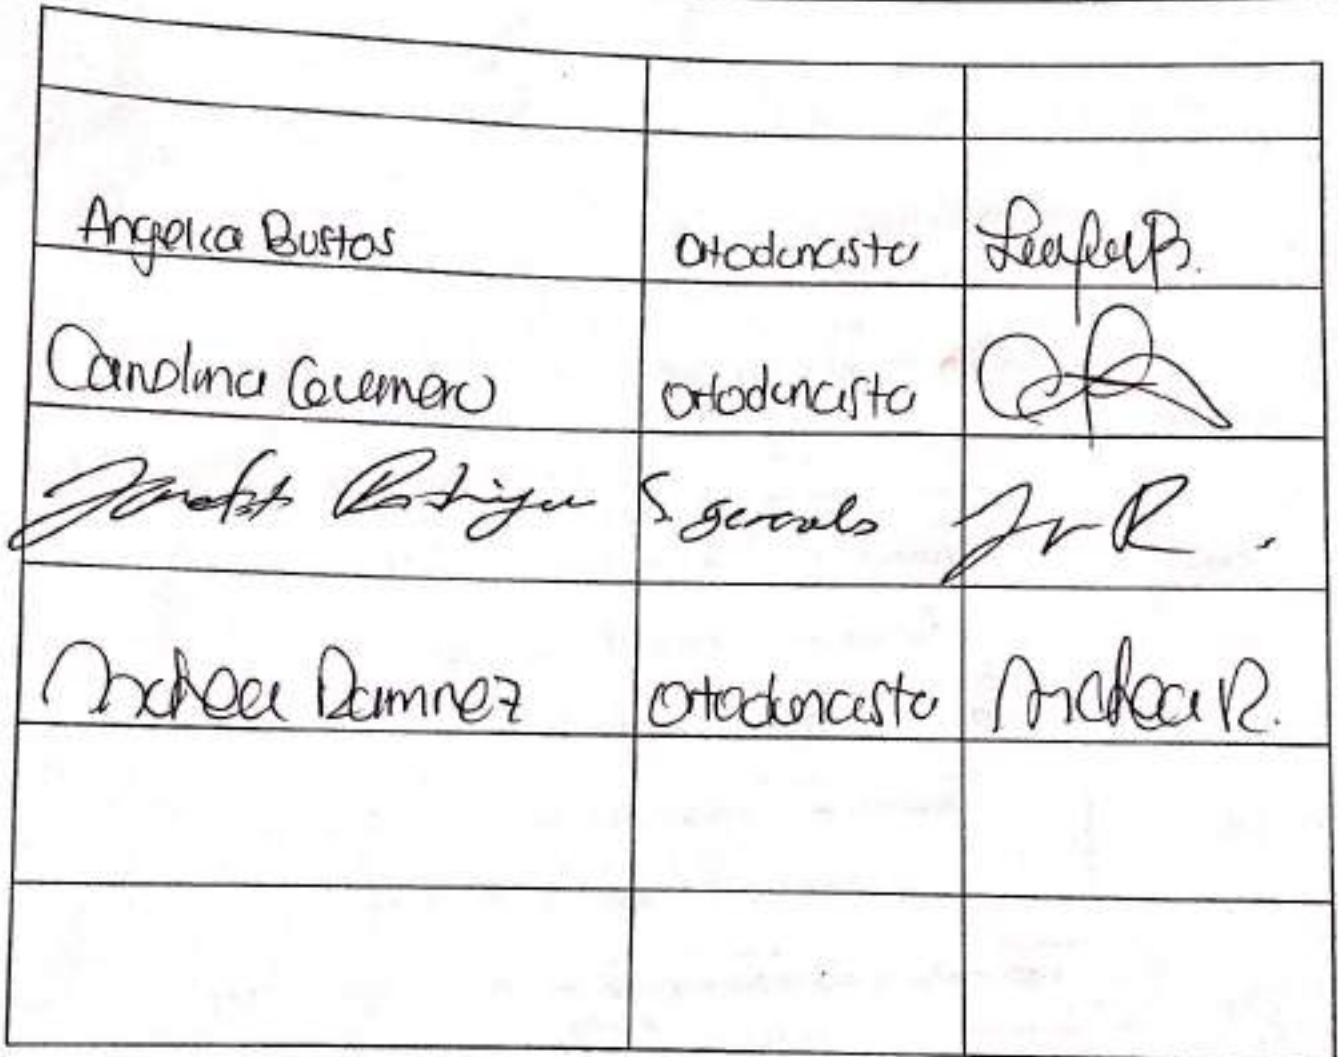 Angelica Bustos ortodoncista
Carolina Guerrero ortodoncista
Rodriguez S. generales
Andrea Ramirez ortodoncista Andrea R.